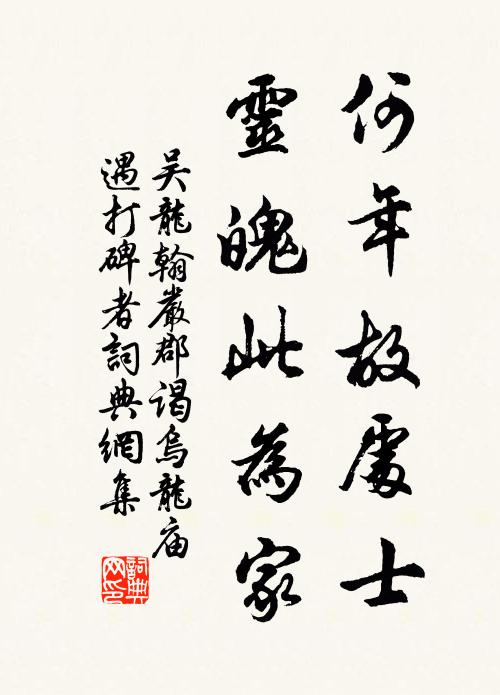 何年故處士
靈魄此為家
吴龍翰嚴郡謁烏龍庙
遇打碑者詞典網集
詞典网印